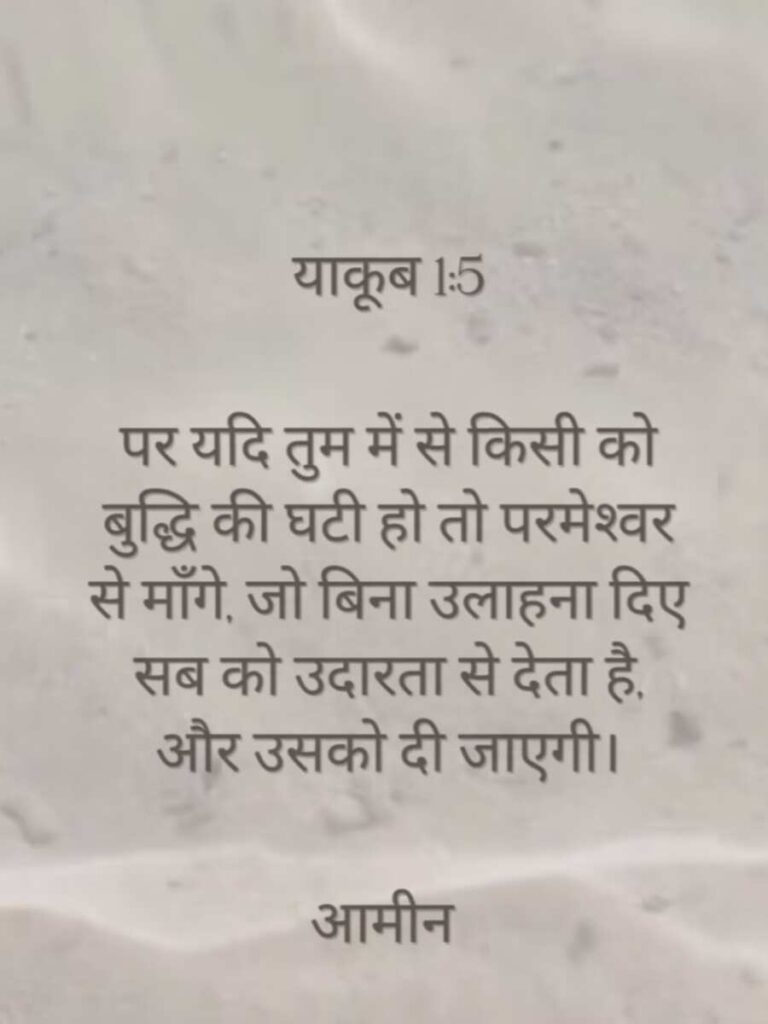 याकूब 1:5
पर यदि तुम में से किसी को
बुद्धि की घटी हो तो परमेश्वर
से माँगे, जो बिना उलाहना दिए
सब को उदारता से देता है,
और उसको दी जाएगी।
आमीन